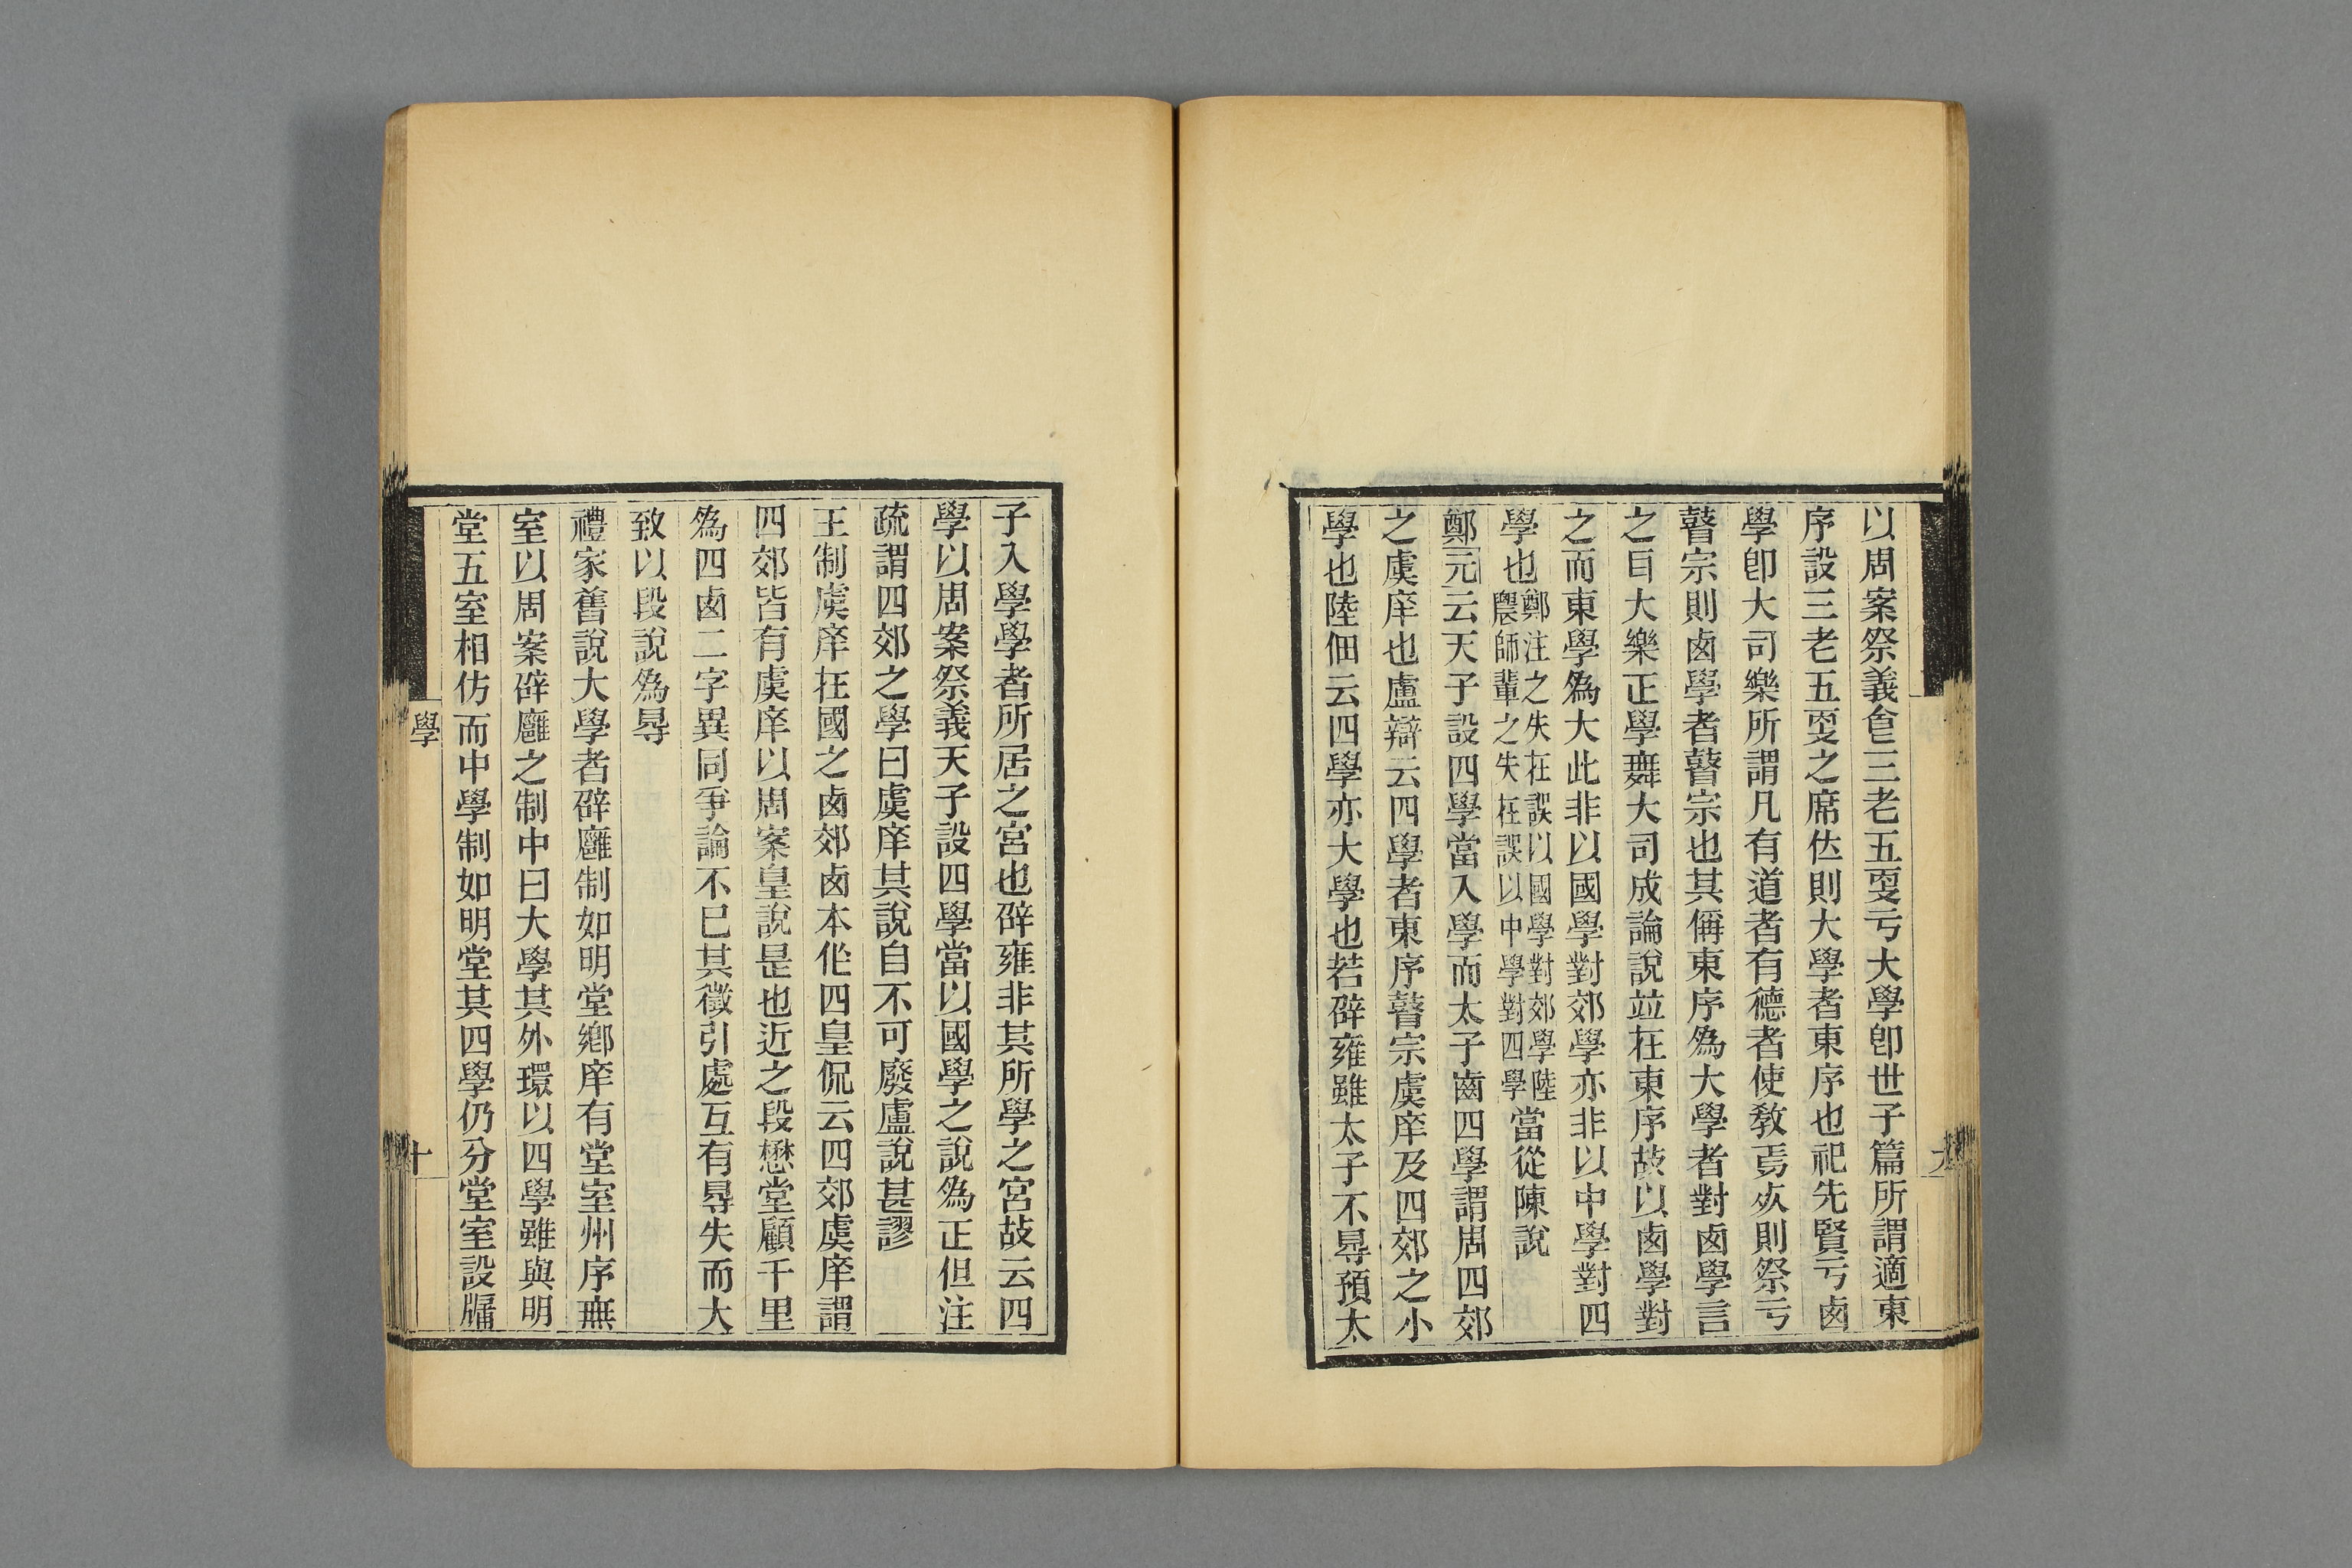 以周案祭義食三老五叜亏大學卽世子篇所謂適東
序設三老五叜之席位則大學者東序也祀先賢亏卥
學卽大司樂所謂凡有道者有德者使敎焉死則祭亏
瞽宗則卥學者瞽宗也其偁東序爲大學者對卥學言
之目大樂正學舞大司成論說竝在東序故以卥學對
之而東學爲大此非以國學對郊學亦非以中學對四
學也鄭注之失在誤以國學對郊學陸農師輩之失在誤以中學對四學當從陳說
鄭元云天子設四學當入學而太子齒四學謂周四郊
之虞庠也盧辯云四學者東序瞽宗虞庠及四郊之小
學也陸佃云四學亦大學也若辟雍雖太子不㝵預太
子入學學者所居之宮也辟雍非其所學之宮故云四
學以周案祭義天子設四學當以國學之說爲正但注
疏謂四郊之學曰虞庠其說自不可廢盧說甚謬
王制虞庠在國之卥郊卥本作四皇侃云四郊虞庠謂
四郊皆有虞庠以周案皇說是也近之段懋堂顧千里
爲四卥二字異同爭論不已其徵引處互有㝵失而大
致以段說爲㝵
禮家舊說大學者辟廱制如明堂鄉庠有堂室州序無
室以周案辟廱之制中曰大學其外環以四學雖與明
堂五室相仿而中學制如明堂其四學仍分堂室設牖
學
十